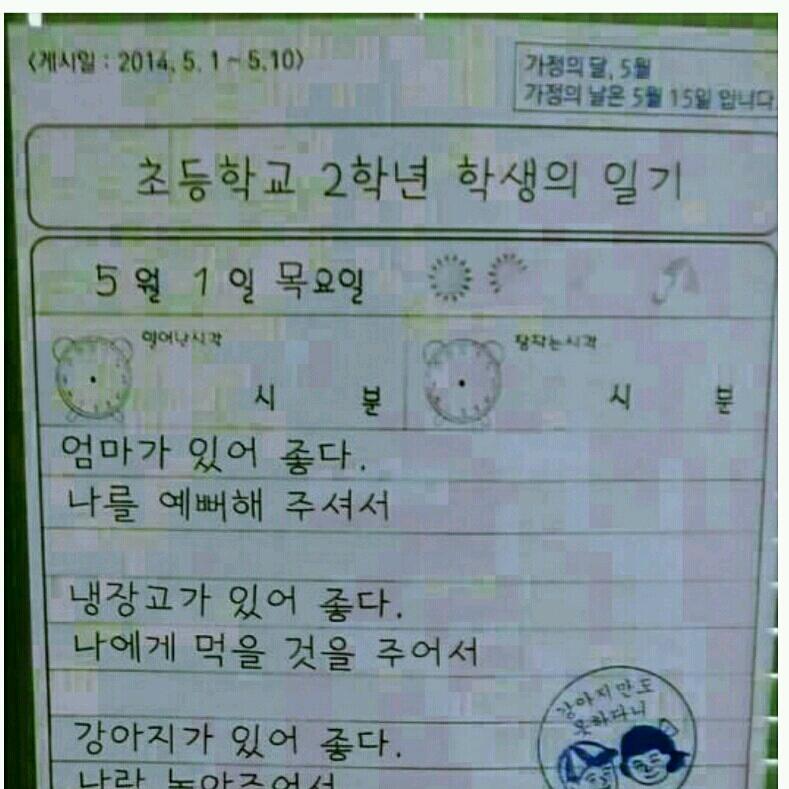 <게시일 : 2014. 5. 1 ~ 5.10>
가정의 달, 5월
가정의 날은 5월 15일 입니다.
초등학교 2학년 학생의 일기
5월 1일 목요일
일어난시각
잠자는시각
시 분
시 분
엄마가 있어 좋다.
나를 예뻐해 주셔서
냉장고가 있어 좋다.
나에게 먹을 것을 주어서
강아지가 있어 좋다.
나랑 놀아주어서
강아지만도
못하다니